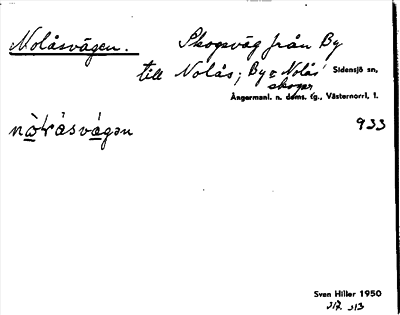 Nolåsvägen. Skogsväg från By
till Nolås; By o Nolås' Sidensjö sn,
skogar
Ångermanl. n. doms. tg., Västernorrl. l.
933
Sven Hiller 1950
312 313